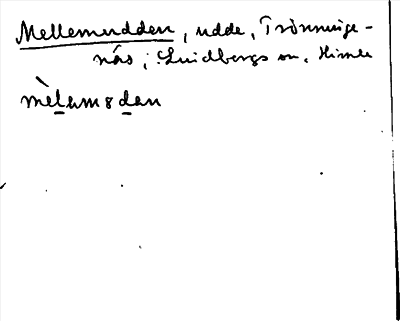 Mellemudden, udde, Trönninge-
näs; Lindbergs sn. Himle
mèlemsdan